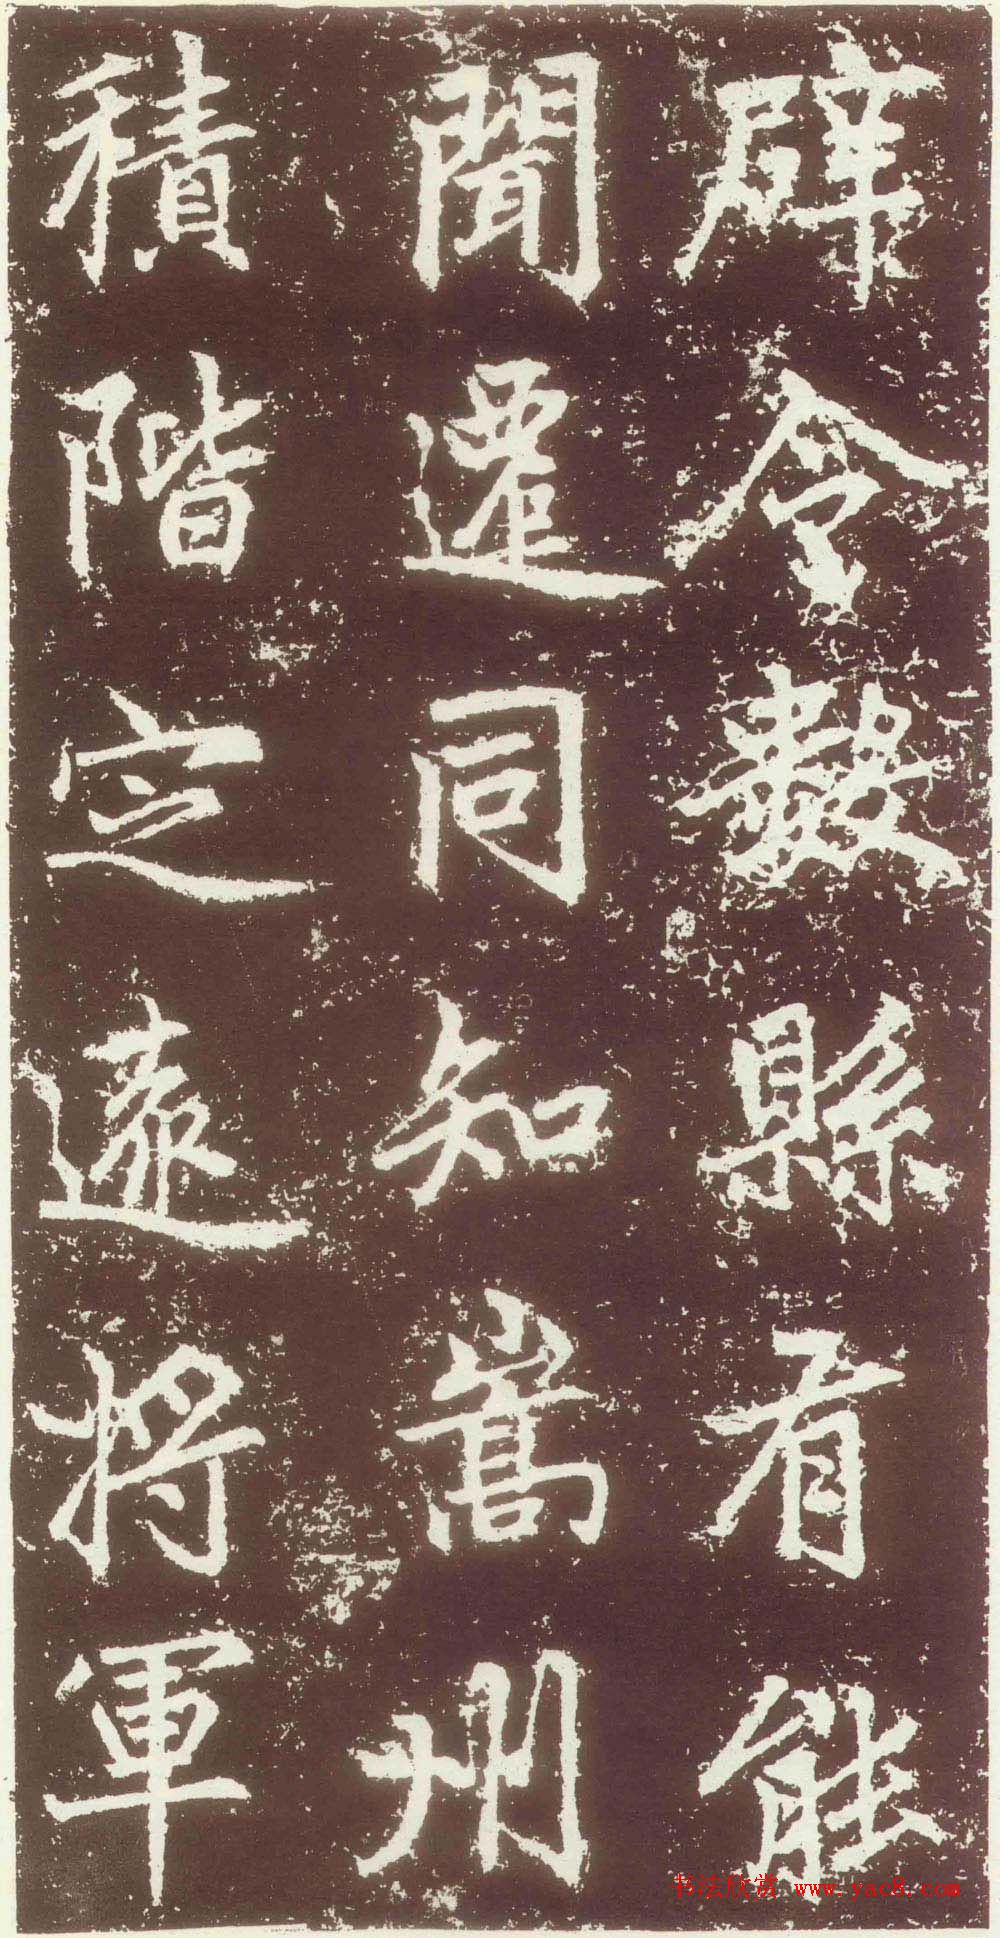 辟令數縣有能
聞遷同知嵩州
積階定遠將軍
书法欣赏 www.yac8.com